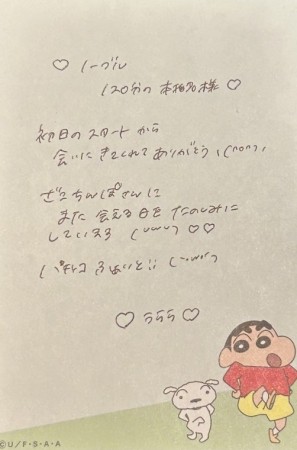 ♡ ノーブル
120分の 本指名様 ♡
初日の スタート から
会いに きてくれて ありがとう
ぜっちんぱさんに
また 会える日を たのしみに
しています ♡♡
♡ うらら ♡
©U/F・S・A・A